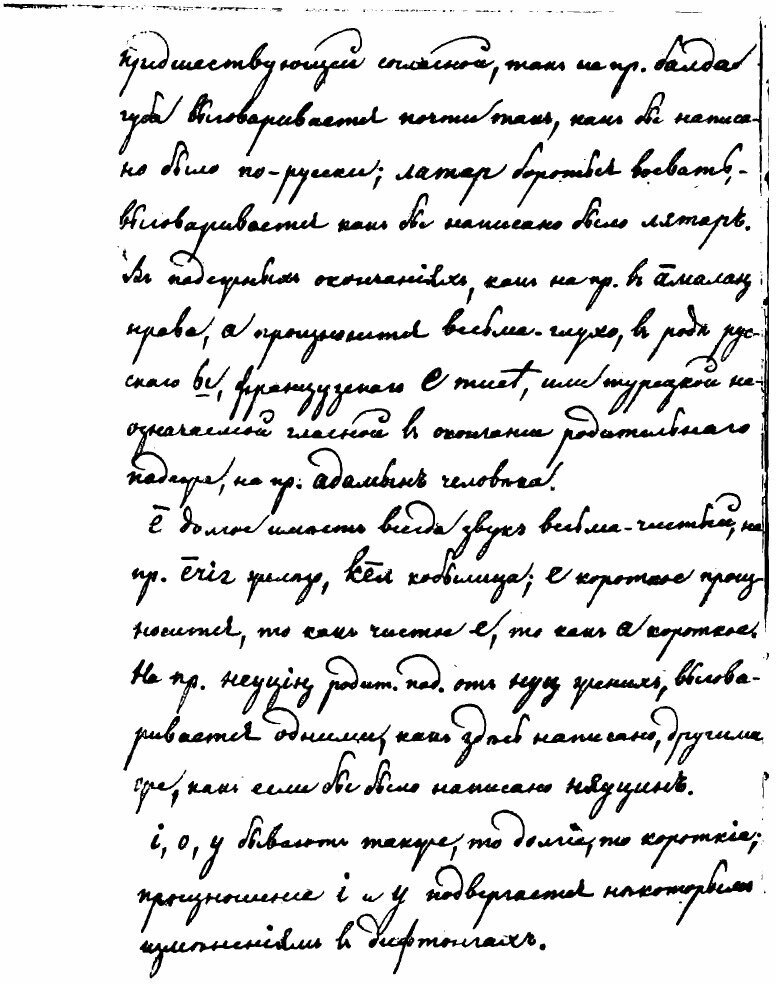 предшествующей согласной, такъ на пр. балдаб
губа выговаривается почти такъ, какъ бы написа-
но было по-русски; латар бороться воевать,-
выговаривается какъ бы написано было лятаръ.
Въ падежныхъ окончаніяхъ, какъ на пр. въ āмалаӊ
нрава, а произносится весьма-глухо, въ родѣ рус-
скаго ы, французскаго e muet, или турецкой не-
означаемой гласной въ окончаніи родительнаго
падежа, на пр. адамынъ человѣка.
ē долгое имѣетъ всегда звукъ весьма-чистый, на
пр. ēчіг желѣзо, кēля кобылица; е короткое произ-
носится, то какъ чистое е, то какъ а короткое.
На пр. неуціӊ родит. пад. отъ нуӊ женихъ, выгова-
ривается одними, какъ здѣсь написано, другими
же, какъ если бы было написано няуцинъ.
і, о, у бываютъ также, то долгіе, то короткіе;
произношеніе і и у подвергается нѣкоторымъ
измѣненіямъ въ дифтонгахъ.